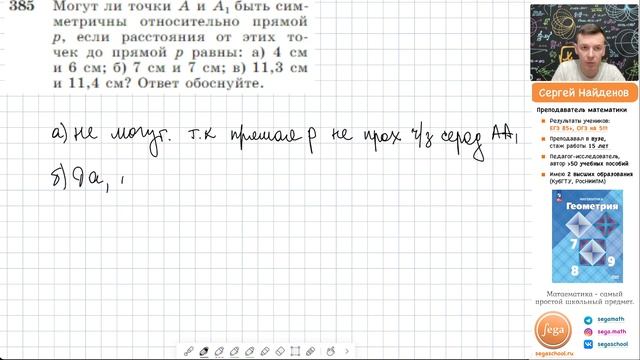 385 Могут ли точки A и A₁ быть сим-
метричны относительно прямой
p, если расстояния от этих то-
чек до прямой p равны: а) 4 см
и 6 см; б) 7 см и 7 см; в) 11,3 см
и 11,4 см? Ответ обоснуйте.
а) не могут. т.к прямая p не прох ч/з серед AA₁
б) Да,
Сергей Найденов
Преподаватель математики
Результаты учеников:
ЕГЭ 85+, ОГЭ на 5!!!
Преподавал в вузе,
стаж работы 15 лет
Педагог-исследователь,
автор >50 учебных пособий
Имею 2 высших образования
(КубГТУ, РосНОУ)
МАТЕМАТИКА
Геометрия
7
8
9
Математика - самый
простой школьный предмет.
Sega
segaschool.ru
segamath
sega.math
segaschool